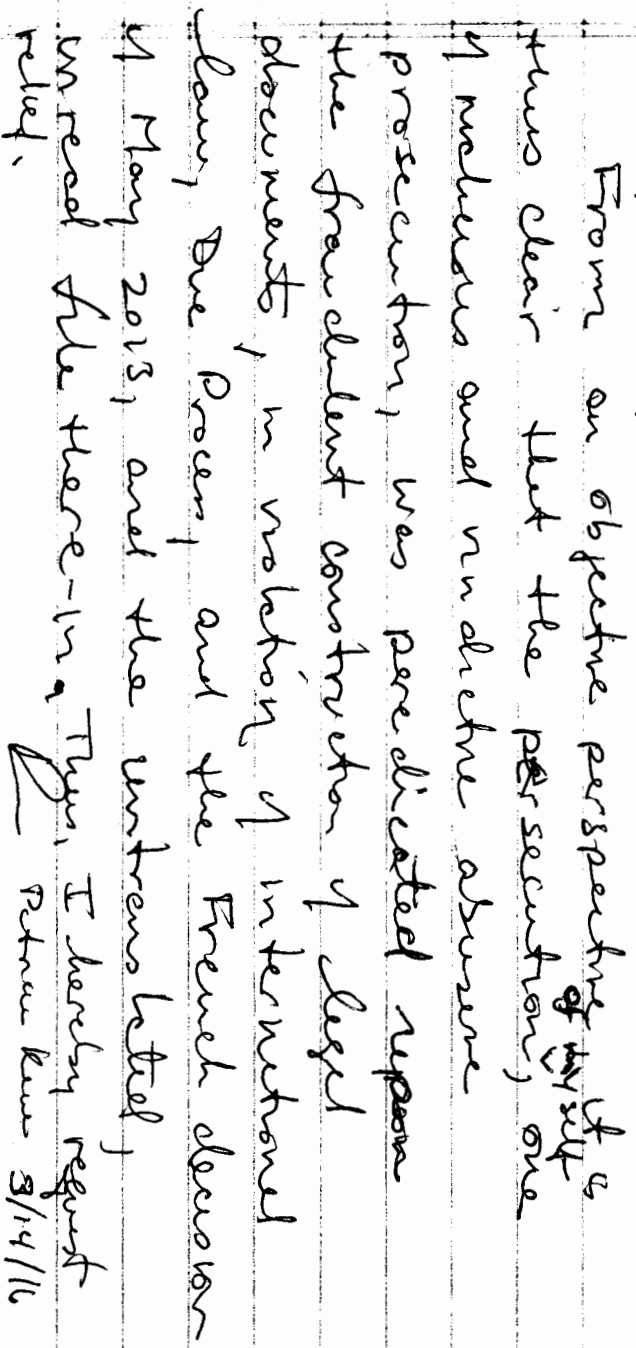 From an objective perspective it is
thus clear that the persecution, of myself one
of malicious and vindictive abusive
prosecution, was peredicated upon
the fraudulent construction of legal
documents, in violation, of international
law, Due Process, and the French decision
of May 2013, and the untranslated,
unread file there-in. Thus, I hereby request
relief. 3/14/16